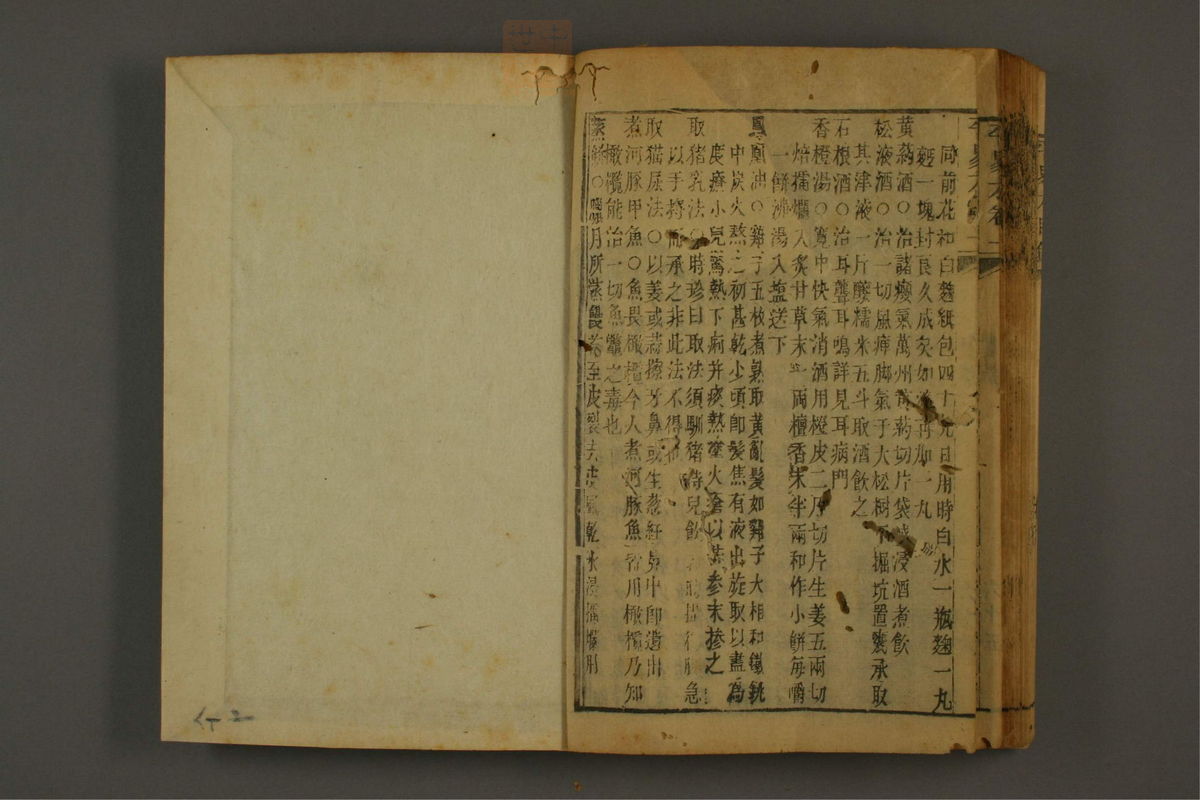 同前花和白麴紙包四十九日用時白水一瓶麴一丸
麫一塊封良久成矣如再加一丸
黄藥酒○治諸癭氣萬州黄藥切片袋盛浸酒煮飲
松液酒○治一切風痺脚氣于大松樹下掘坑置甕承取
其津液一斤釀糯米五斗取酒飲之
石根酒○治耳聾耳鳴詳見耳病門
香橙湯○寛中快氣消酒用橙皮二斤切片生姜五兩切
焙擂爛入炙甘草末一兩檀香末半兩和作小餅每嚼
一餅沸湯入盐送下
鳳凰油○雞子五枚煮熟取黄亂髮如雞子大相和鐵銚
中炭火熬之初甚乾少頃即髮焦有液出旋取以盡為
度療小兒驚熱下痢并痰熱瘡以苦參末摻之
取猪乳法○時珍曰取法須馴猪待兒飲急
以手捋而承之非此法不得也
取猫尿法○以姜或蒜擦牙鼻或生葱紝鼻中即遺出
煮河豚甲魚○魚畏橄欖今人煮河豚魚皆用橄欖乃知
橄欖能治一切魚鱉之毒也
蒸餅○臘月所蒸饅至皮裂去皮乾水浸擂爛用